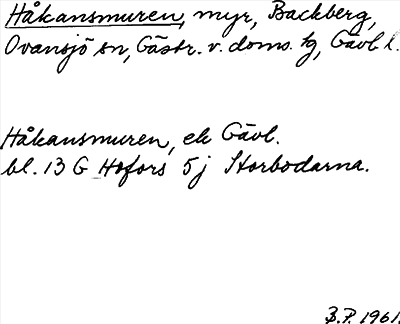 Håkansmuren, myr, Backberg,
Ovansjö sn, Gästr. v. doms. tg, Gävl. l.
Håkansmuren, ek Gävl.
bl. 13 G Hofors 5j Storbodarna.
B.P. 1961.